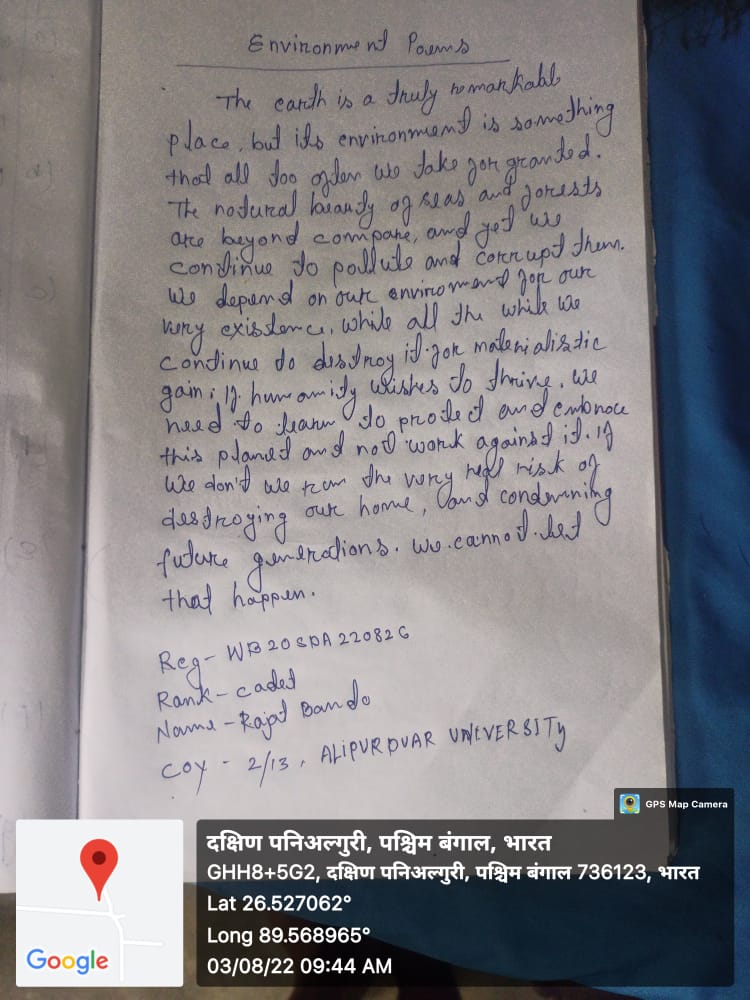 Environment Poems
The earth is a truly remarkable
place, but its environment is something
that all too often we take for granted.
The natural beauty of seas and forests
are beyond compare, and yet we
continue to pollute and corrupt them.
We depend on our enviroment for our
very existence, while all the while we
continue to destroy it for materialistic
gain. If humanity wishes to thrive, we
need to learn to protect and embrace
this planet and not work against it. If
we don't we run the very real risk of
destroying our home, and condemning
future generations. we cannot let
that happen.
Reg- WB20SDA220826
Rank- cadet
Name- Rajat Bando
COY - 2/13, ALIPURDUAR UNIVERSITY
GPS Map Camera
दक्षिण पनिअल्गुरी, पश्चिम बंगाल, भारत
GHH8+5G2, दक्षिण पनिअल्गुरी, पश्चिम बंगाल 736123, भारत
Lat 26.527062°
Long 89.568965°
03/08/22 09:44 AM
Google